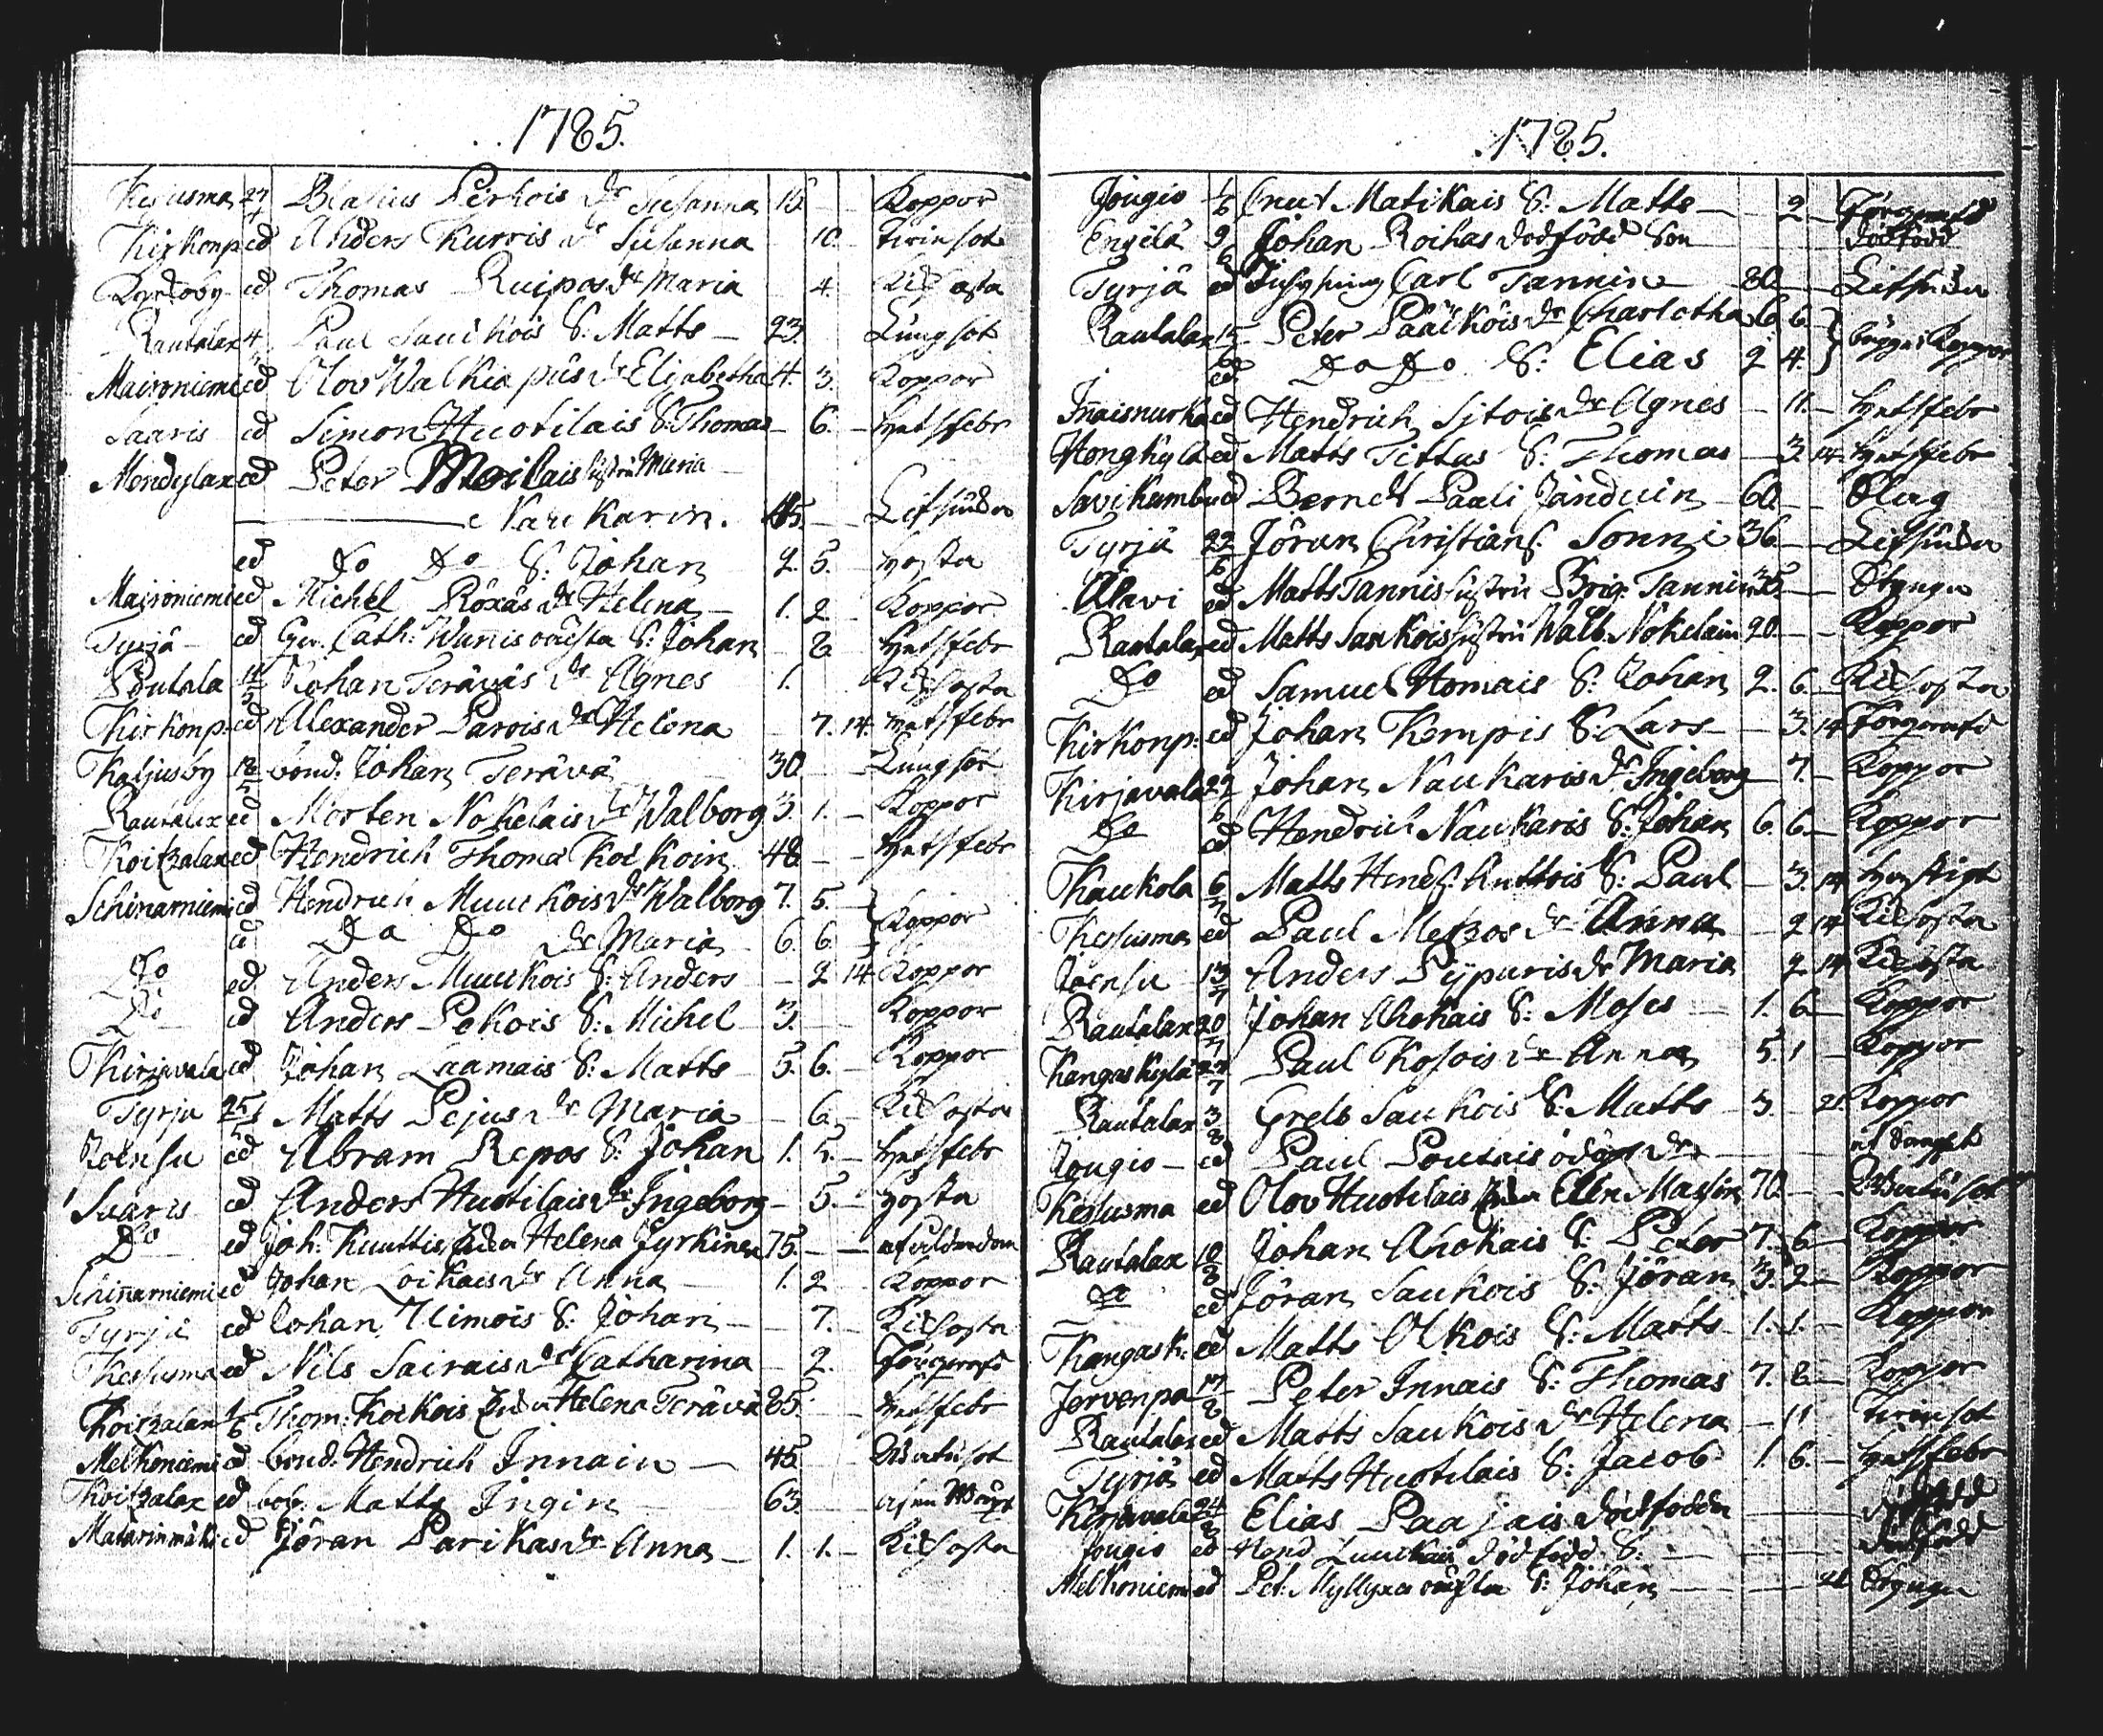 1785.
Kesusma 27/4 Blasius Pirhois dr Susanna 15. — Koppor
Kirkonp. ed Anders Kurris dr Susanna 10. Tvinsot
ed Thomas Ruipas dr Maria 4. Kikhosta
Rautalax Paul Saukois S. Matts — 23. Lungsot
Majroniemi ed Olov Walkiapäis dr Elisabetha 4. 3. Koppor
Saaris ed Simon Huotilais S. Thomas — 6. — Hetsfebr
Mondylax ed Peter Moilais hustru Maria
Naukarin. 45. — Lifsindn
ed Do Do S. Johan 2. 5. — hosta
Majroniemi ed Michel Röxäs dr Helena — 1. 2. Koppor
Tyrjä — ed Gev. Cath: Wannis oäkta S. Johan — 8 — Hetsfebr
Poutala 11/5 Johan Teräväs dr Agnes 1. Kikhosta
Kirkonp. ed Alexander Parois dr Helena — 7. 14. Hetsfebr
Kaljusby 18/5 bond. Johan Terävä 30. — Lungsot
Rautalax ed Morten Nokelais dr Walborg 3. 1. — Koppor
Koitzalax ed Hendrich Thomas Koikoin 48. — Hetsfebr
Schinarniemi ed Hendrich Muukois dr Walborg 7. 5. — } Koppor
ed Do Do dr Maria — 6. 6.
Do ed Anders Muukois S. Anders — 2 14. Koppor
Do ed Anders Pekois S. Michel 3. Koppor
Kirjavala ed Johan Laamais S. Matts — 5. 6. — Koppor
Tyrjä 25/5 Matts Pejus dr Maria — 6. — Kikhosta
Joensu ed Abram Repos S. Johan 1. 5. — Hetsfebr
Saaris ed Anders Huotilais dr Ingeborg — 5. — hosta
Do ed Joh. Kuuttis Enka Helena Jyrkinen 75. — — af ålderdom
Schinarniemi ed Johan Loikais dr Anna — 1. 2 Koppor
Tyrjä ed Johan Ilimois S. Johan — 7. — Kikhosta
Kesusma ed Nils Sairais dr Catharina — 2. Förgprof
Koitzalax 1/6 Thom: Koikois Enka Helena Terävä 85. — Hetsfebr
Melkoniemi ed bond. Hendrich Innain — 45. Wattusot
Koitzalax ed Matts Ingin 63.
Matarinmäki ed Jöran Parikas dr Anna — 1. 1. — Kikhosta
1785.
Jougio 1/6 Cnut Matikais S. Matts — — 2 —
Engilä 9/6 Johan Roihas dödfödd Son dödfödd
Tyrjä ed Carl Tannin — 80. — Lifsindn
Rautalax 15/6 Peter Pääköis dr Charlotha 6. 6. } Koppor
ed Do Do S: Elias 2 4.
Inaisnurka ed Hendrich Sitois dr Agnes — 11. — Hetsfebr
Honghyld ed Matts Tittus S. Thomas — 3. 14. Hetsfebr
Savikumbu ed Berndt Pauli Janduin — 60. — Slag
Tyrjä 22/6 Jöran Christians. Sonni 36. — Lifsindn
Alavi ed Matts Tannis hustru Brig. Tannin 35. — Styngn
Rautalax ed Matts Saukois hustru Walb. Nokelain 20. — Koppor
Do ed Samuel Homais S: Johan 2. 6. — Kikhosta
Kirkonp: ed Johan Kempis S. Lars — — 3. 14.
Kirjavala 22/6 Johan Naukaris dr Ingeborg — 7. — Koppor
Do ed Hendrich Naukaris S: Johan 6. 6. — Koppor
Kaukola 6/7 Matts Hends. Anttois S: Paul — 3. 14.
Kesusma ed Paul Metzos dr Anna — 2 14 Kikhosta
Joensu 13/7 Anders Pypuris dr Maria 2. 14. Kikhosta
Rautalax 20/7 Johan Ahokais S. Moses — 1. 6. Koppor
Kangaskylä 27/7 Paul Kosois dr Anna 5. 1 — Koppor
Rautalax 3/8 Grels Saukois S: Matts — 3. — 21. Koppor
Jougio — ed Paul Poutais odöpt dr —
Kesusma ed Olov Huotilais Enka Elin Massin 70. — Wattusot
Rautalax 10/8 Johan Ahokais S. Peter 7. 6 — Koppor
Do ed Jöran Saukois S: Jöran 3. 2. — Koppor
Kangask: ed Matts Olkois S: Matts — 1. 1. — Koppor
Jervenpä 17/8 Peter Innais S: Thomas 7. 8 — Koppor
Rautalax ed Matts Saukois dr Helena — 11 Tvinsot
Tyrjä ed Matts Huotilais S: Jacob 1. 6. — Hetsfebr
Kirjavala 24/8 Elias Paajais dödfödde — dödfödd
Jougio ed Hend Luukais dödfödd S: — dödfödd
Melkoniemi ed Pet. Myllyxes oäkta S: Johan — 21. Stynga